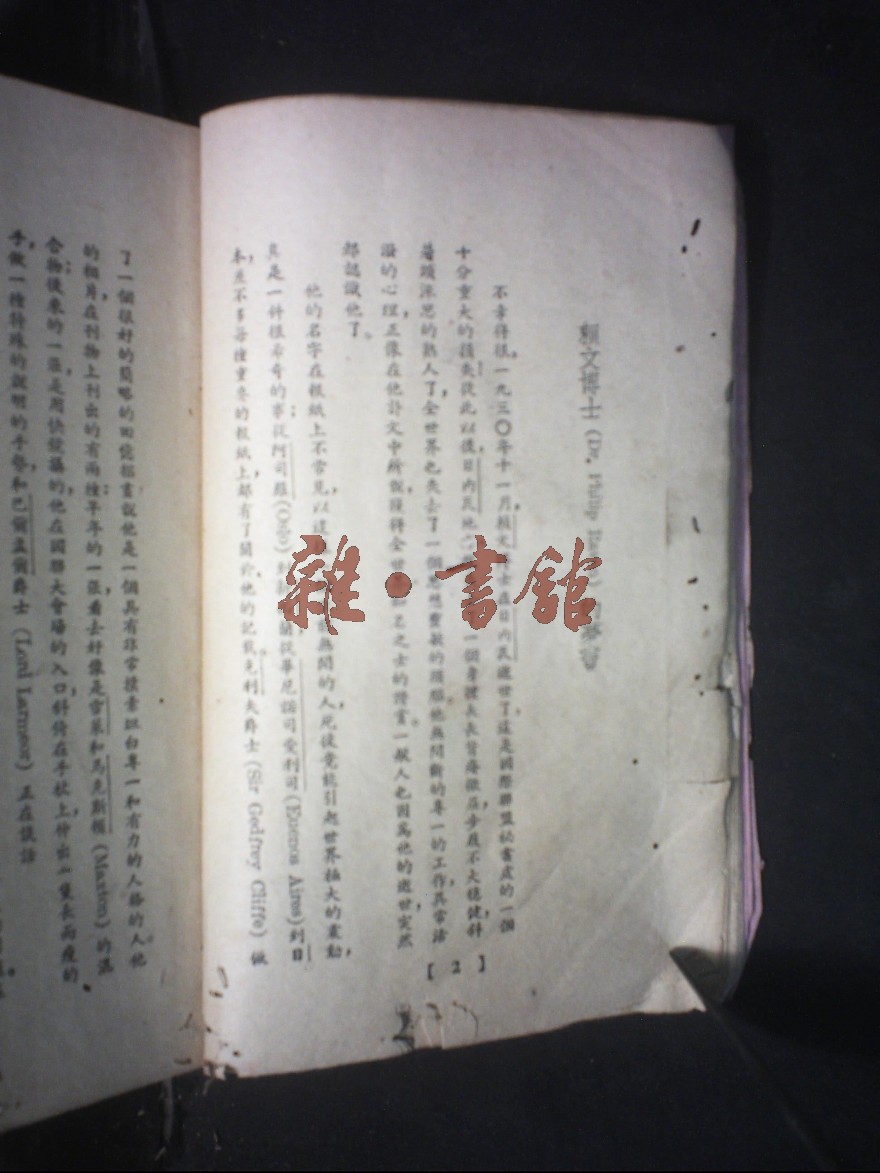 賴文博士 (Dr. Philip
不幸得很，一九三〇年十一月賴文 士 日內瓦逝世了這是國際聯盟祕書處的一個
十分重大的損失從此以後日內瓦地 一個身體夫長背脊微屈步履不大穩健，斜
著頭深思的熟人了，全世界也失去了一個思想靈敏的頭腦他無間斷的專一的工作異常活
潑的心理正像在他訃文中所 獲得全世 知名之士的讚賞一般人也因爲他的逝世突然
都認識他了。
他的名字在報紙上不常見，以這 無聞的人死後竟能引起世界極大的震動，
真是一件很希奇的事從阿司羅 (Oslo) 到 蘭從華尼諾司愛利司 (Buenos Aires) 到日
本，差不多每種重要的報紙上都有了關於他的記載。克利夫爵士 (Sir Godfrey Cliffe) 做
了一個很好的簡略的回憶錄，說他是一個具有非常樸素坦白專一和有力的人格的人。他
的相片，在刊物上刊出的有兩種：早年的一張看去好像是雪萊和馬克斯頓 (Maxton) 的混
合物；後來的一張，是用快鏡攝的，他在國聯大會場的入口，斜倚在手杖上，伸出一隻長而瘦的
手，做一種特殊的說明的手勢，和巴爾孟爾爵士 正在談話
[ 2 ]
雜·書館